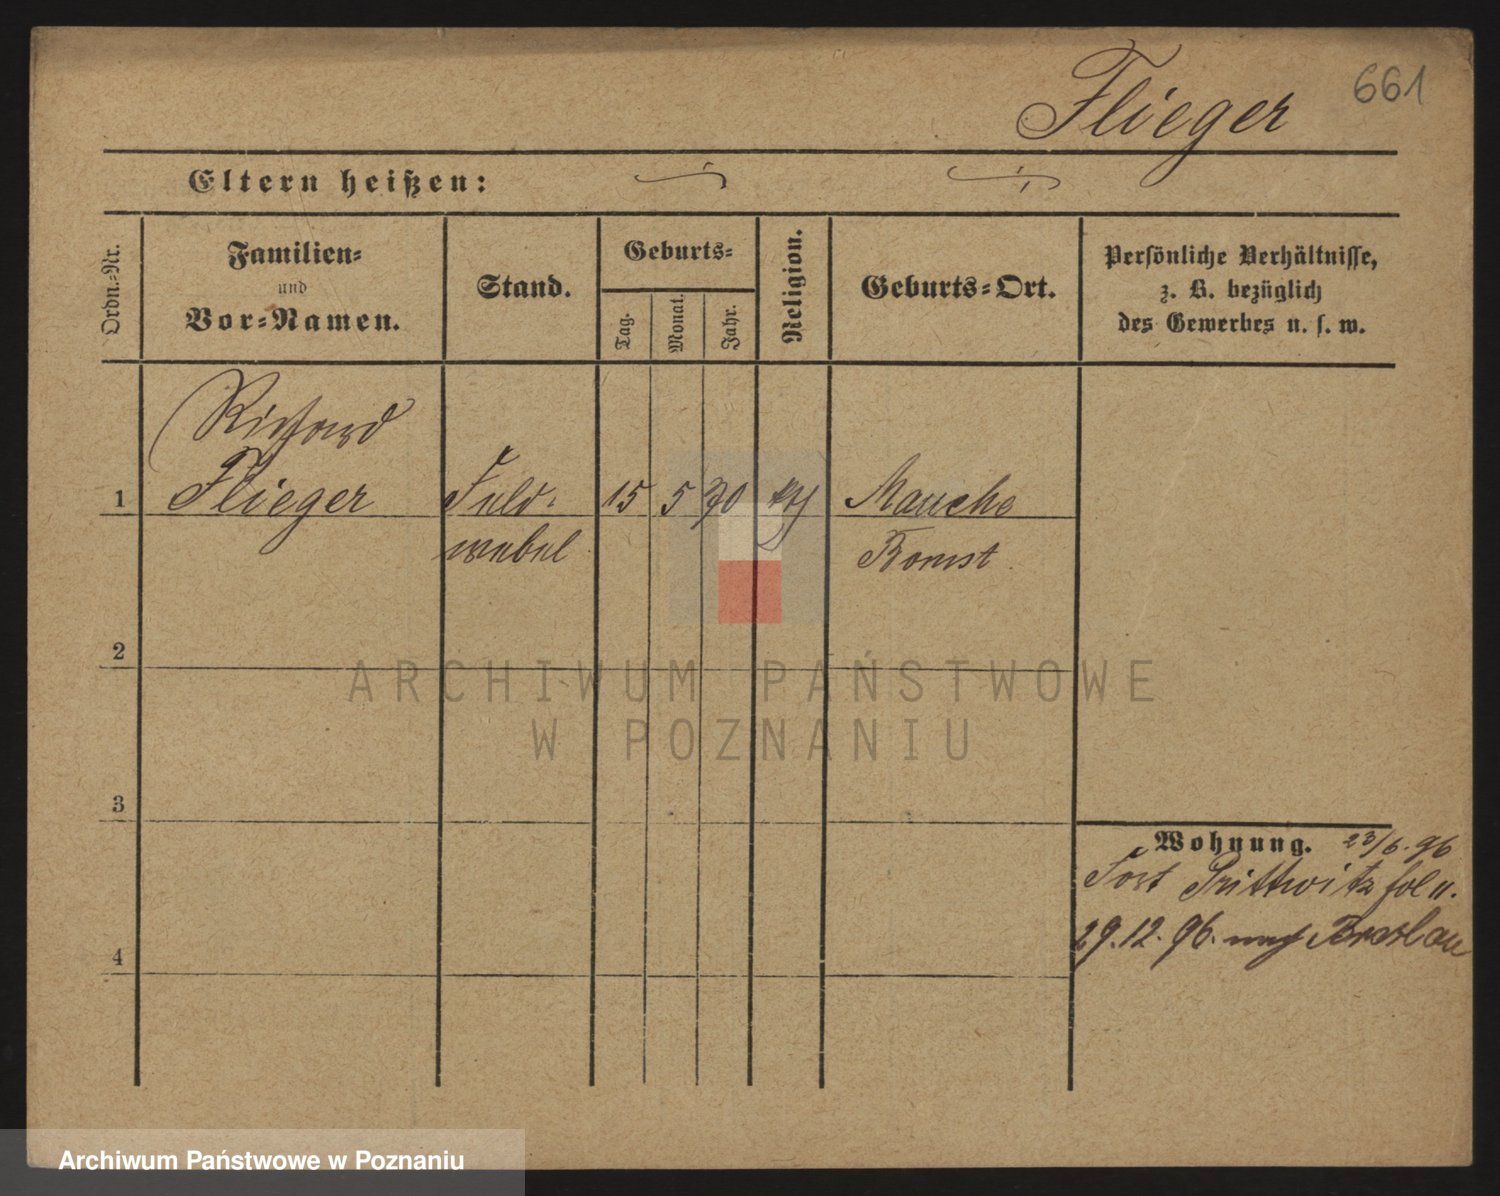 661
Flieger
Eltern heißen:
Ordn.=Nr.
Familien=
und
Vor=Namen.
Stand.
Geburts=
Tag.
Monat.
Jahr.
Religion.
Geburts=Ort.
Persönliche Verhältnisse,
z. B. bezüglich
des Gewerbes u. s. w.
Richard
1 Flieger Feld= 15 5 70 Mauche
webel Bomst.
2
3
4
Wohnung. 23/6. 96
Fort Prittwitz fol 11.
29.12.96. nach Breslau
ARCHIWUM PAŃSTWOWE
W POZNANIU
Archiwum Państwowe w Poznaniu